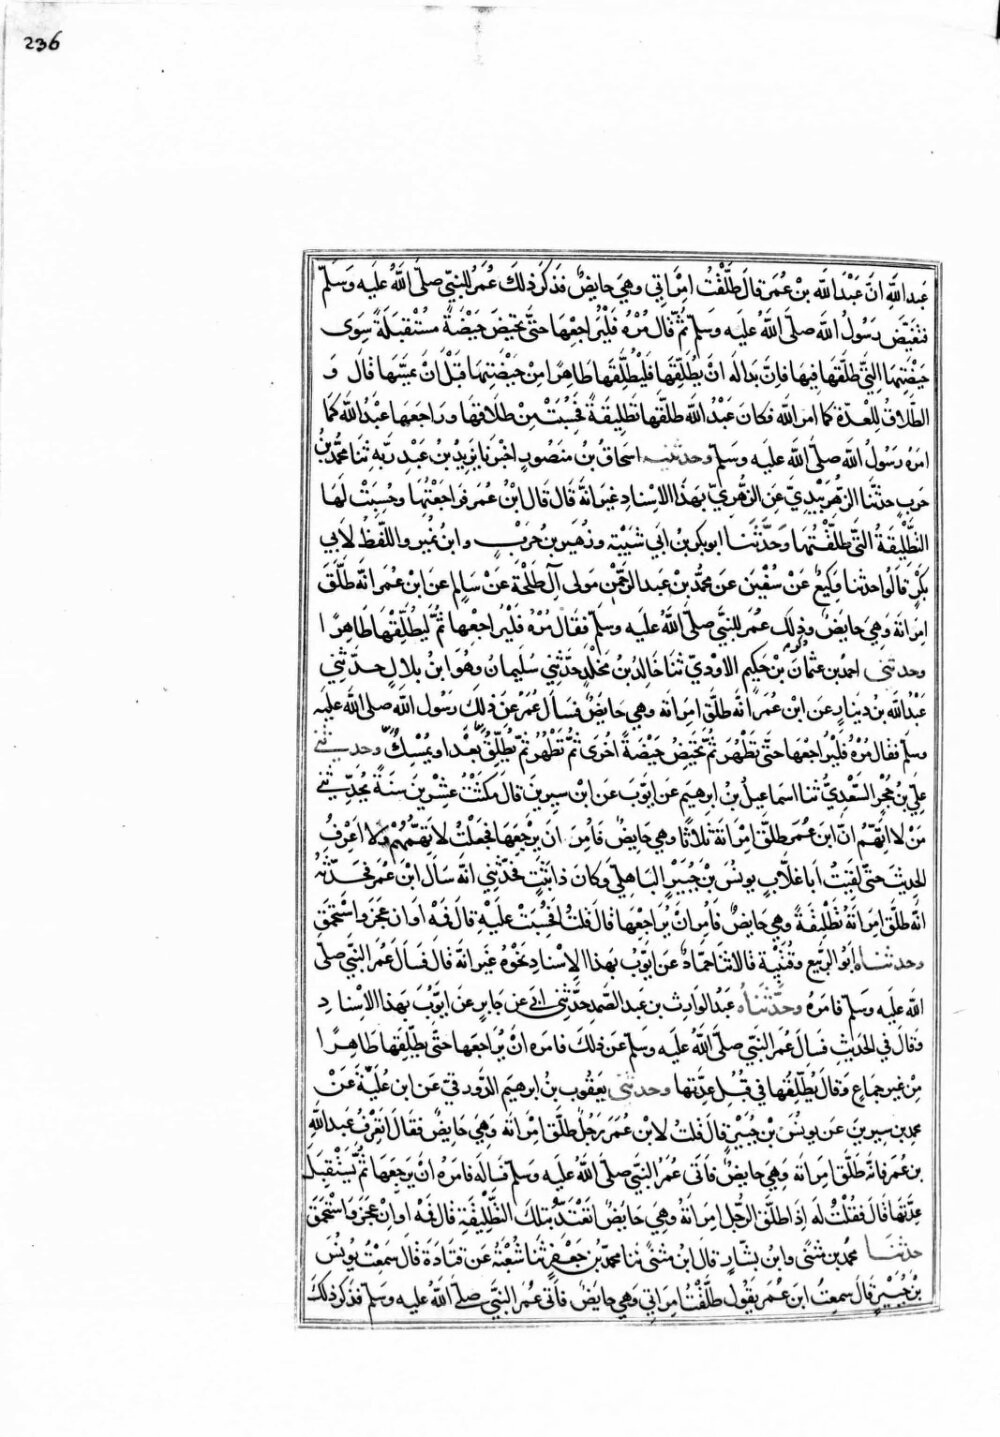 236
عبد الله ان عَبْدَ الله بن عُمَر قال طلَّقتُ امْرَاتِي وهيَ حايضٌ فذكَر ذلكَ عُمَرُ للنبيّ صلّى اللهُ عليه وَسَلّم
فتغيّض رَسُولُ الله صلى الله عليه وسلم ثم قال مُرْهُ فليُراجِعْها حتّى تحيضَ حَيْضَةً مُسْتقبَلَةً سِوَى
حَيْضَتِهَا التِيْ طلّقها فيها فان بَدا له انْ يُطلّقها فليُطلّقها طاهِرًا مِن حَيْضتِها قبْل انْ يمَسّها قال وَ
الطلاقُ للعدّة كما امر الله فكان عَبْدُ الله طلّقها تطليقةً فحُسِبَتْ مِنْ طلاقِها ورَاجَعها عبْدُ الله كمَا
امَرهُ رَسُولُ الله صلى الله عليه وسلم وحدثنيه اسحاق بن منصورٍ اخبرنا يزيدُ بن عَبْدِ ربّه ثنا محمّد بنُ
حربٍ حدثنَا الزبَيْدِيّ عَن الزهْرِيّ بهذا الاسْنادِ غير انه قال قال ابْنُ عُمر فراجعْتُها وحُسِبَتْ لهَا
التطلِيقةُ التي طلّقْتُها وَحَدّثَنَا ابوبكر بن ابي شَيْبة وزُهَير بن حَربٍ وابن نُمير واللفظُ لأبي
بكْرٍ قالوا حدثنا وَكيعٌ عَنْ سُفْيَن عَن محمّد بْن عَبد الرّحمٰن مَولى آل طلحَة عَنْ سَالِم عَن ابْن عُمر انه طلّقَ
امرَاتهُ وَهِيَ حايضٌ فذكر ذلك عُمَر للنبيّ صلى اللهُ عليه وسلم فقال مُرْهُ فليُراجِعْها ثم ليُطلّقها طاهِرًا
وحدثنى احمد بن عثمان بْن حكيم الاوْديّ ثنَا خالد بن مَخْلَدٍ حدّثني سُليمان وَهو ابنُ بلالٍ حدّثني
عَبْدُ الله بن دينار عَن ابن عُمر انه طلّق امراته وهي حايضٌ فسَأل عُمَر عَن ذلك رسُول الله صلى الله عليه
وسلم فقال مُرْهُ فليُراجِعْها حتى تَطْهُرَ ثم تحيضَ حَيْضةً اخْرَى ثم تَطهُرَ ثم يُطلّق بَعْد او يُمْسك وحدثني
عَلِيّ بنُ حُجْرٍ السّعْديُّ ثنا اسماعيلُ بنُ ابرهيم عَن ايّوبَ عَن ابن سِيرينَ قال مَكثتُ عشْرينَ سَنَةً يُحدّثني
مَنْ لا اتّهمُ انّ ابن عُمَر طلّق امْرَاتهُ ثلاثًا وهي حَايضٌ فأُمِرَ ان يرجعَها فجَعلتُ لا اتّهمُهُمْ ولا اعْرِفُ
الحدِيثَ حتّى لقيتُ أبا غلّابٍ يونُسَ بْن جُبَيرٍ البَاهِليَّ وَكان ذا ثبَتٍ فحَدّثني انّهُ سَألَ ابْن عُمَر فحَدّثهُ
انّه طلّق امراتهُ تطليقةً وهي حَايضٌ فأُمِرَ انْ يُرَاجِعَها قالَ قلتُ أفحُسِبَتْ عليْهِ قالَ فمهْ اوَ ان عَجَزَ واستحمَقَ
وحدثناه أبو الرّبيع وقُتَيْبةُ قالا ثنا حمّادٌ عَن ايّوبَ بهذا الإسْنادِ نحوَهُ غير انه قال فسَأل عُمر النبي صلى
الله عليه وسلم فامَرهُ وحَدَّثَنَاهُ عَبدُ الوارث بن عبد الصّمد حَدّثنى ابي عن جدّي عَن ايّوب بهذا الاسْنادِ
وَقال في الحَدِيثِ فسَأل عُمر النبي صلى الله عليه وسلّم عَن ذلكَ فامَره انْ يُراجَعها حتى يُطلّقَها طاهِرًا
مِن غيرِ جماعٍ وَقالَ يُطلّقُها في قُبُلِ عِدّتها وحدثنى يَعقوب بن ابرهيم الدّورَقيّ عَن ابن عُليّةَ عَنْ
محمد بن سِيرين عن يونسَ بْن جُبَيْرٍ قال قلتُ لابْنِ عُمَر رَجُلٌ طلّق امْرَاتهُ وَهيَ حَايضٌ فقال اتعْرِفُ عبدَ الله
بن عمر فانه طلّق امرَاتَهُ وَهيَ حايضٌ فَأتى عُمَرُ النبيّ صلى الله عليه وسلم فسَالَهُ فأمَرَهُ انْ يَرجعَها ثمّ تستقبلَ
عِدّتها قَالَ فقلتُ له إذا طلّق الرّجُل امرَاتهُ وهي حَايضٌ اتَعْتَدّ بتلكَ التطلِيقةِ قال فمَهْ اوَ انْ عجزَ واستحمَقَ
حدثنا محمد بن مثنًى وابن بشّارٍ قال ابنُ مُثنّى ثنا محمدُ بن جَعْفرٍ ثنا شُعْبَةُ عَن قتَادَةَ قال سَمِعتُ يونُسَ
بْن جُبَيرٍ قالَ سمِعتُ ابن عُمَر يقُول طلّقتُ امرَاتي وهي حايضٌ فأتى عُمَر النبيّ صلى اللهُ عليه وسلم فذكر ذلكَ